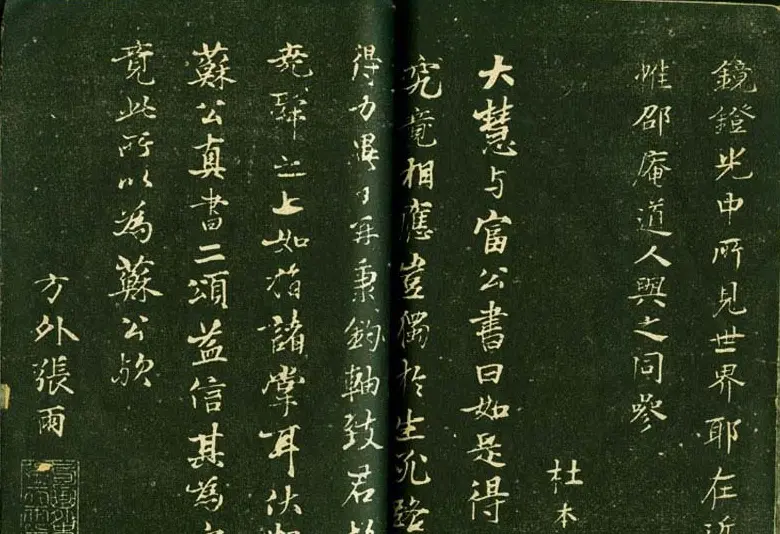 鏡鐙光中所見世界耶在近
惟邵庵道人與之同參
杜本
大慧与富公書曰如是得
究竟相應豈獨於生死路
得力異日再秉鈞軸致君於
堯舜之上如指諸掌耳伏
蘇公真書二頌益信其為
竟此所以為蘇公歟
方外張雨